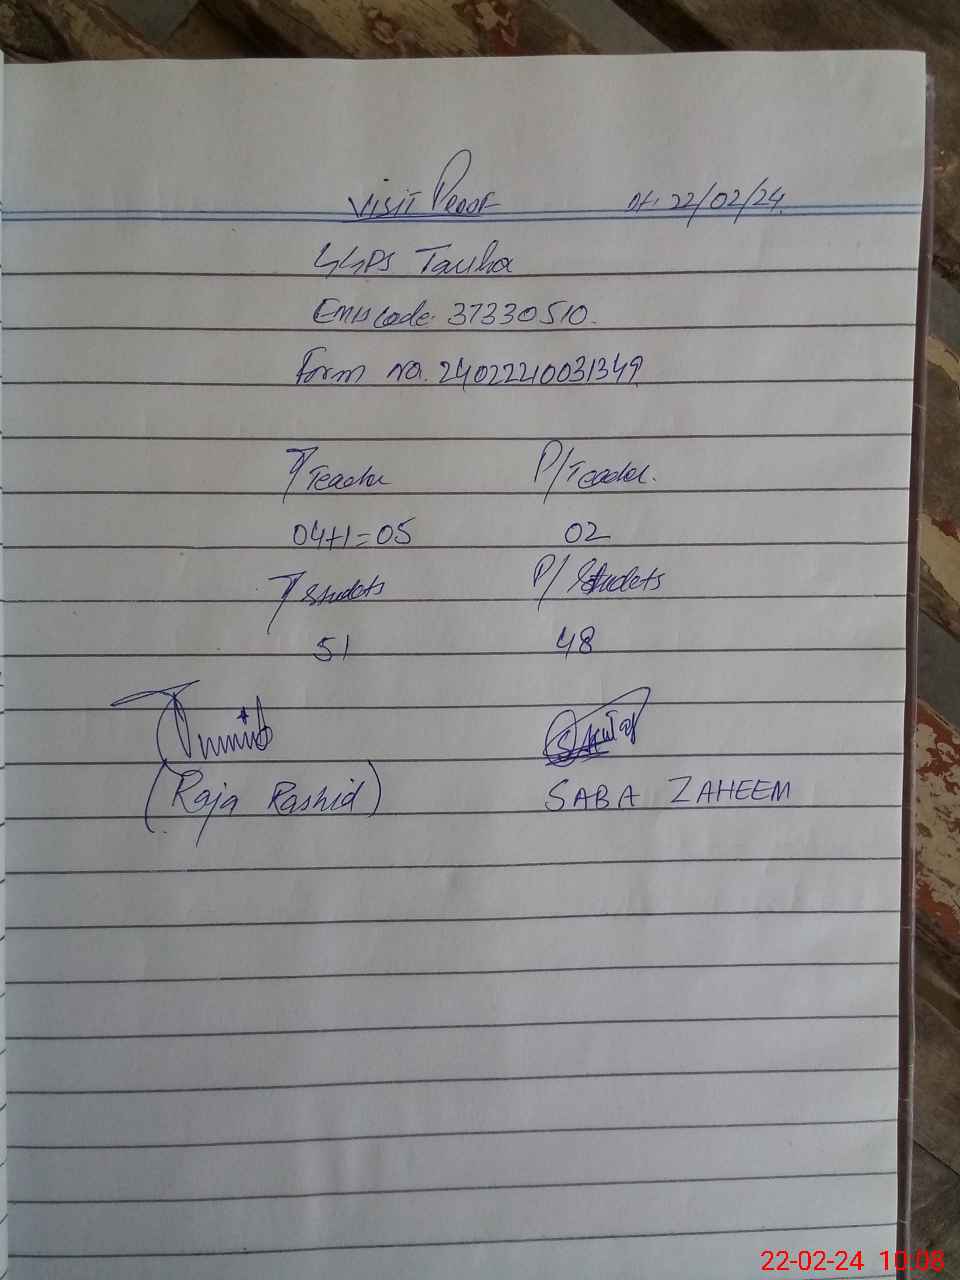 Visit Proof Dt: 22/02/24
GGPS Tauha
Emis code: 37330510.
Form no. 2402221003 1349
T/Teacher P/Teacher.
04+1=05 02
T/Students P/Students
51 48
(Raja Rashid) SABA ZAHEEM
22-02-24 10:08